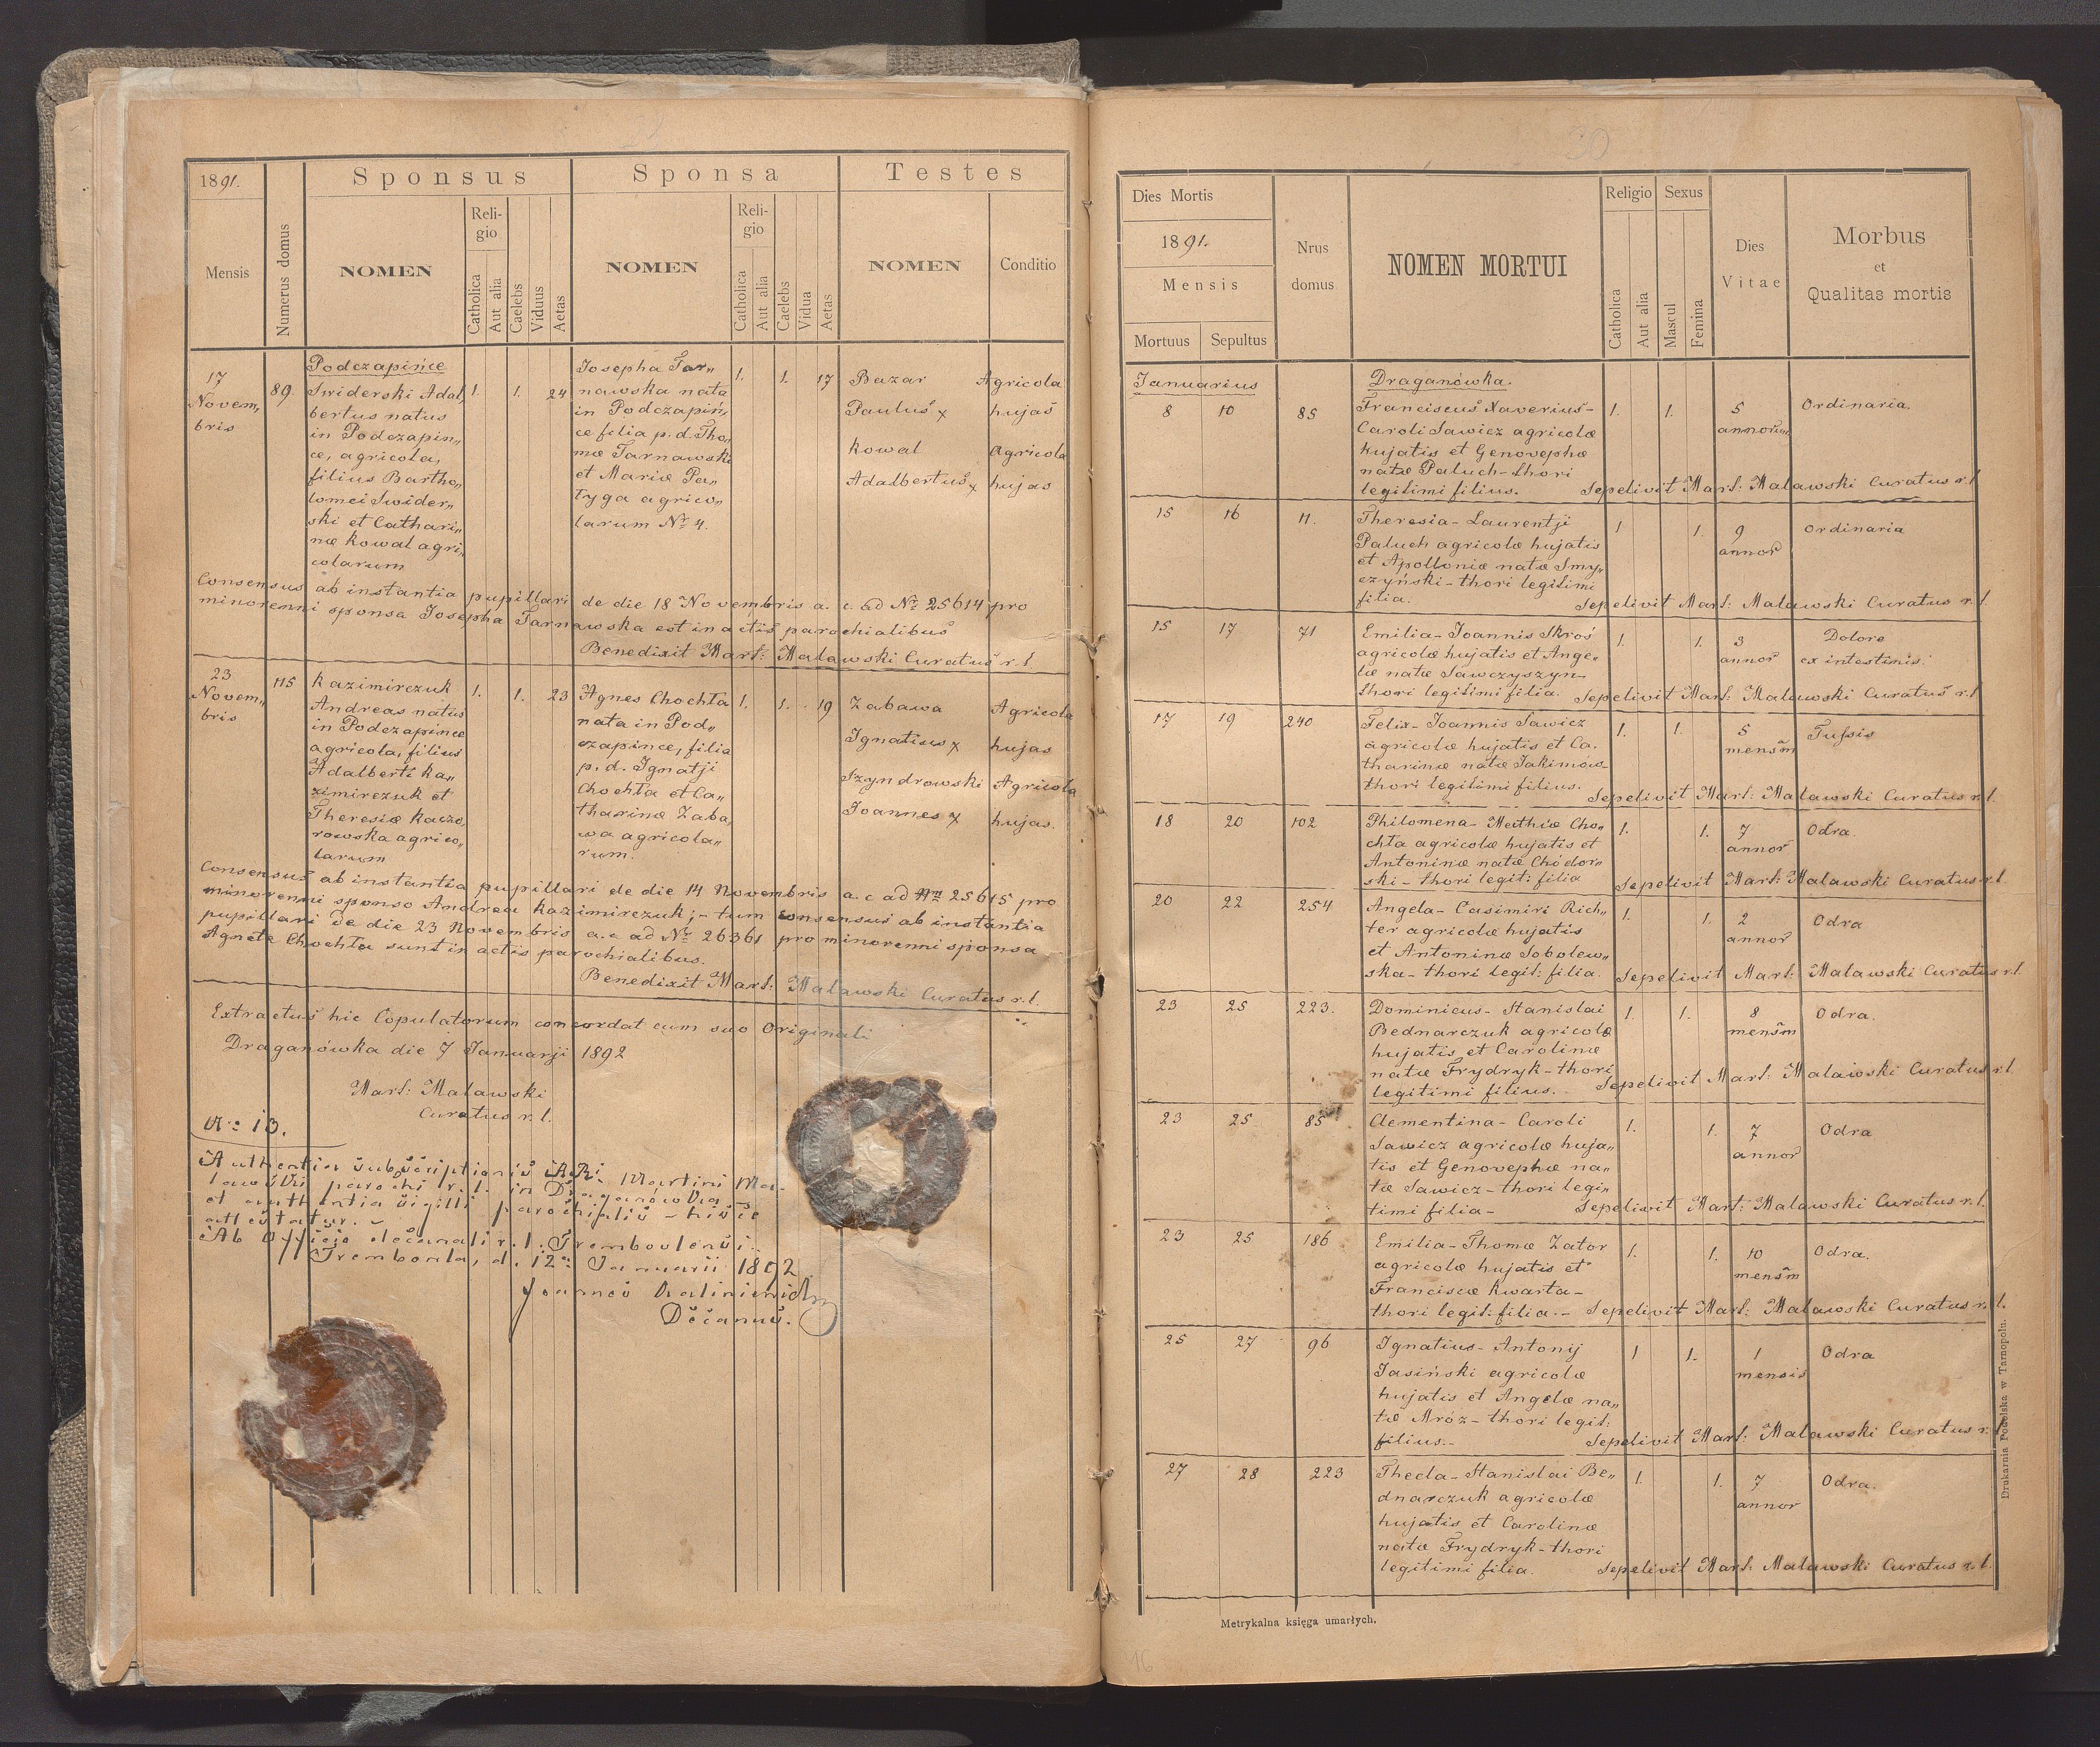 1891.
Sponsus
Sponsa
Testes
Mensis
Numerus domus
NOMEN
Reli-
gio
Catholica
Aut alia
Caelebs
Viduus
Aetas
NOMEN
Reli-
gio
Catholica
Aut alia
Caelebs
Vidua
Aetas
NOMEN
Conditio
17
Novem„
bris
89.
Podczapińce
Swiderski Adal„
bertus natus
in Podczapin„
ce, agricola,
filius Bartho„
lomei Swider„
ski et Cathari„
næ Kowal agri„
colarum
1.
1.
24
Josepha Tar„
nawska nata
in Podczapiń„
ce filia p. d. Tho„
mæ Tarnawski
et Mariæ Pa„
tyga agrico„
larum Nr 4.
1.
1.
17
Bazar
Paulus x
Kowal
Adalbertus x
Agricola
hujas
Agricola
hujas
Consensus ab instantia pupillari de die 18 Novembris a. c. ad Nr 25614 pro
minorenni sponsa Josepha Tarnawska est in actis parochialibus
Benedixit Mart: Malawski Curatus r. l.
23
Novem„
bris
115
Kazimirczuk
Andreas natus
in Podczapince
agricola, filius
Adalberti Ka„
zimirczuk et
Theresiæ Kaczo„
rowska agrico„
larum
1.
1.
23
Agnes Chochła
nata in Pod„
czapince, filia
p. d. Ignatji
Chochła et Ca„
tharinæ Zaba„
wa agricola„
rum.
1.
1.
19
Zabawa
Ignatius x
Szyndrowski
Joannes x
Agricola
hujas
Agricola
hujas.
Consensus ab instantia pupillari de die 14 Novembris a. c ad Nr 25615 pro
minorenni sponso Andrea Kazimirczuk; - tum consensus ab instantia
pupillari de die 23 Novembris a. c ad Nr 26361 pro minorenni sponsa
Agnete Chochła sunt in actis parochialibus.
Benedixit Mart: Malawski Curatus r. l.
Extractus hic Copulatorum concordat cum suo Originali.
Draganówka die 7 Januarji 1892
Mart: Malawski
Curatus r. l.
N: 13.
Authentia subscriptionis AR: Martini Ma-
lawski parochi r. l. in Draganówka
et authentia sigilli parochialis - hisce
attestatur. -
Ab Officio decanali r. l. Trembovlensi.
Trembowla, d. 12: Januarii 1892
Joannes
Decanus.
30
Dies Mortis
1891.
Mensis
Mortuus
Sepultus
Nrus
domus
NOMEN MORTUI
Religio
Catholica
Aut alia
Sexus
Mascul
Femina
Dies
Vitae
Morbus
et
Qualitas mortis
Januarius
Draganówka.
8 10 85
Franciscus Xaverius-
Caroli Sawicz agricolæ
hujatis et Genovephæ
natæ Paluch - thori
legitimi filius.
1. 1.
5
annorum
Ordinaria.
Sepelivit Mart: Malawski Curatus r. l
15 16 11.
Theresia - Laurentji
Paluch agricolæ hujatis
et Apolloniæ natæ Smy„
czyński - thori legitimi
filia.
1 1.
9
annor
Ordinaria
Sepelivit Mart: Malawski Curatus r. l.
15 17 71
Emilia - Joannis Skroś
agricolæ hujatis et Ange„
læ natæ Sawczyszyn -
thori legitimi filia.
1. 1.
3
annor
Dolore
ex intestinis.
Sepelivit Mart: Malawski Curatus r. l
17 19 240
Felix - Joannis Sawicz
agricolæ hujatis et Ca„
tharinæ natæ Jakimow -
thori legitimi filius.
1. 1.
5
mensm
Tussis
Sepelivit Mart: Malawski Curatus r. l.
18 20 102
Philomena - Mathiæ Cho„
chła agricolæ hujatis et
Antoninæ natæ Chodor„
ski - thori legit: filia
1. 1.
7
annor
Odra.
Sepelivit Mart: Malawski Curatus r. l.
20 22 254
Angela - Casimiri Rich„
ter agricolæ hujatis
et Antoninæ Sobolew„
ska - thori legit: filia.
1. 1.
2
annor
Odra
Sepelivit Mart: Malawski Curatus r. l.
23 25 223.
Dominicus - Stanislai
Bednarczuk agricolæ
hujatis et Carolinæ
natæ Frydryk - thori
legitimi filius. -
1. 1.
8
mensm
Odra.
Sepelivit Mart: Malawski Curatus r. l.
23 25 85
Clementina - Caroli
Sawicz agricolæ huja„
tis et Genovephæ na„
tæ Sawicz - thori legi„
timi filia -
1. 1.
7
annor
Odra
Sepelivit Mart: Malawski Curatus r. l.
23 25 186
Emilia - Thomæ Zator
agricolæ hujatis et
Franciscæ Kwarta -
thori legit: filia. -
1. 1.
10
mensm
Odra.
Sepelivit Mart: Malawski Curatus r. l.
25 27 96
Ignatius - Antonij
Jasiński agricolæ
hujatis et Angelæ na„
tæ Mróz - thori legit:
filius. -
1 1.
1
mensis
Odra
Sepelivit Mart: Malawski Curatus r. l
27 28 223
Thecla - Stanislai Be„
dnarczuk agricolæ
hujatis et Carolinæ
natæ Frydryk - thori
legitimi filia.
1. 1.
7
annor
Odra.
Sepelivit Mart: Malawski Curatus r. l.
Drukarnia Podolska w Tarnopolu.
Metrykalna księga umarłych.
16